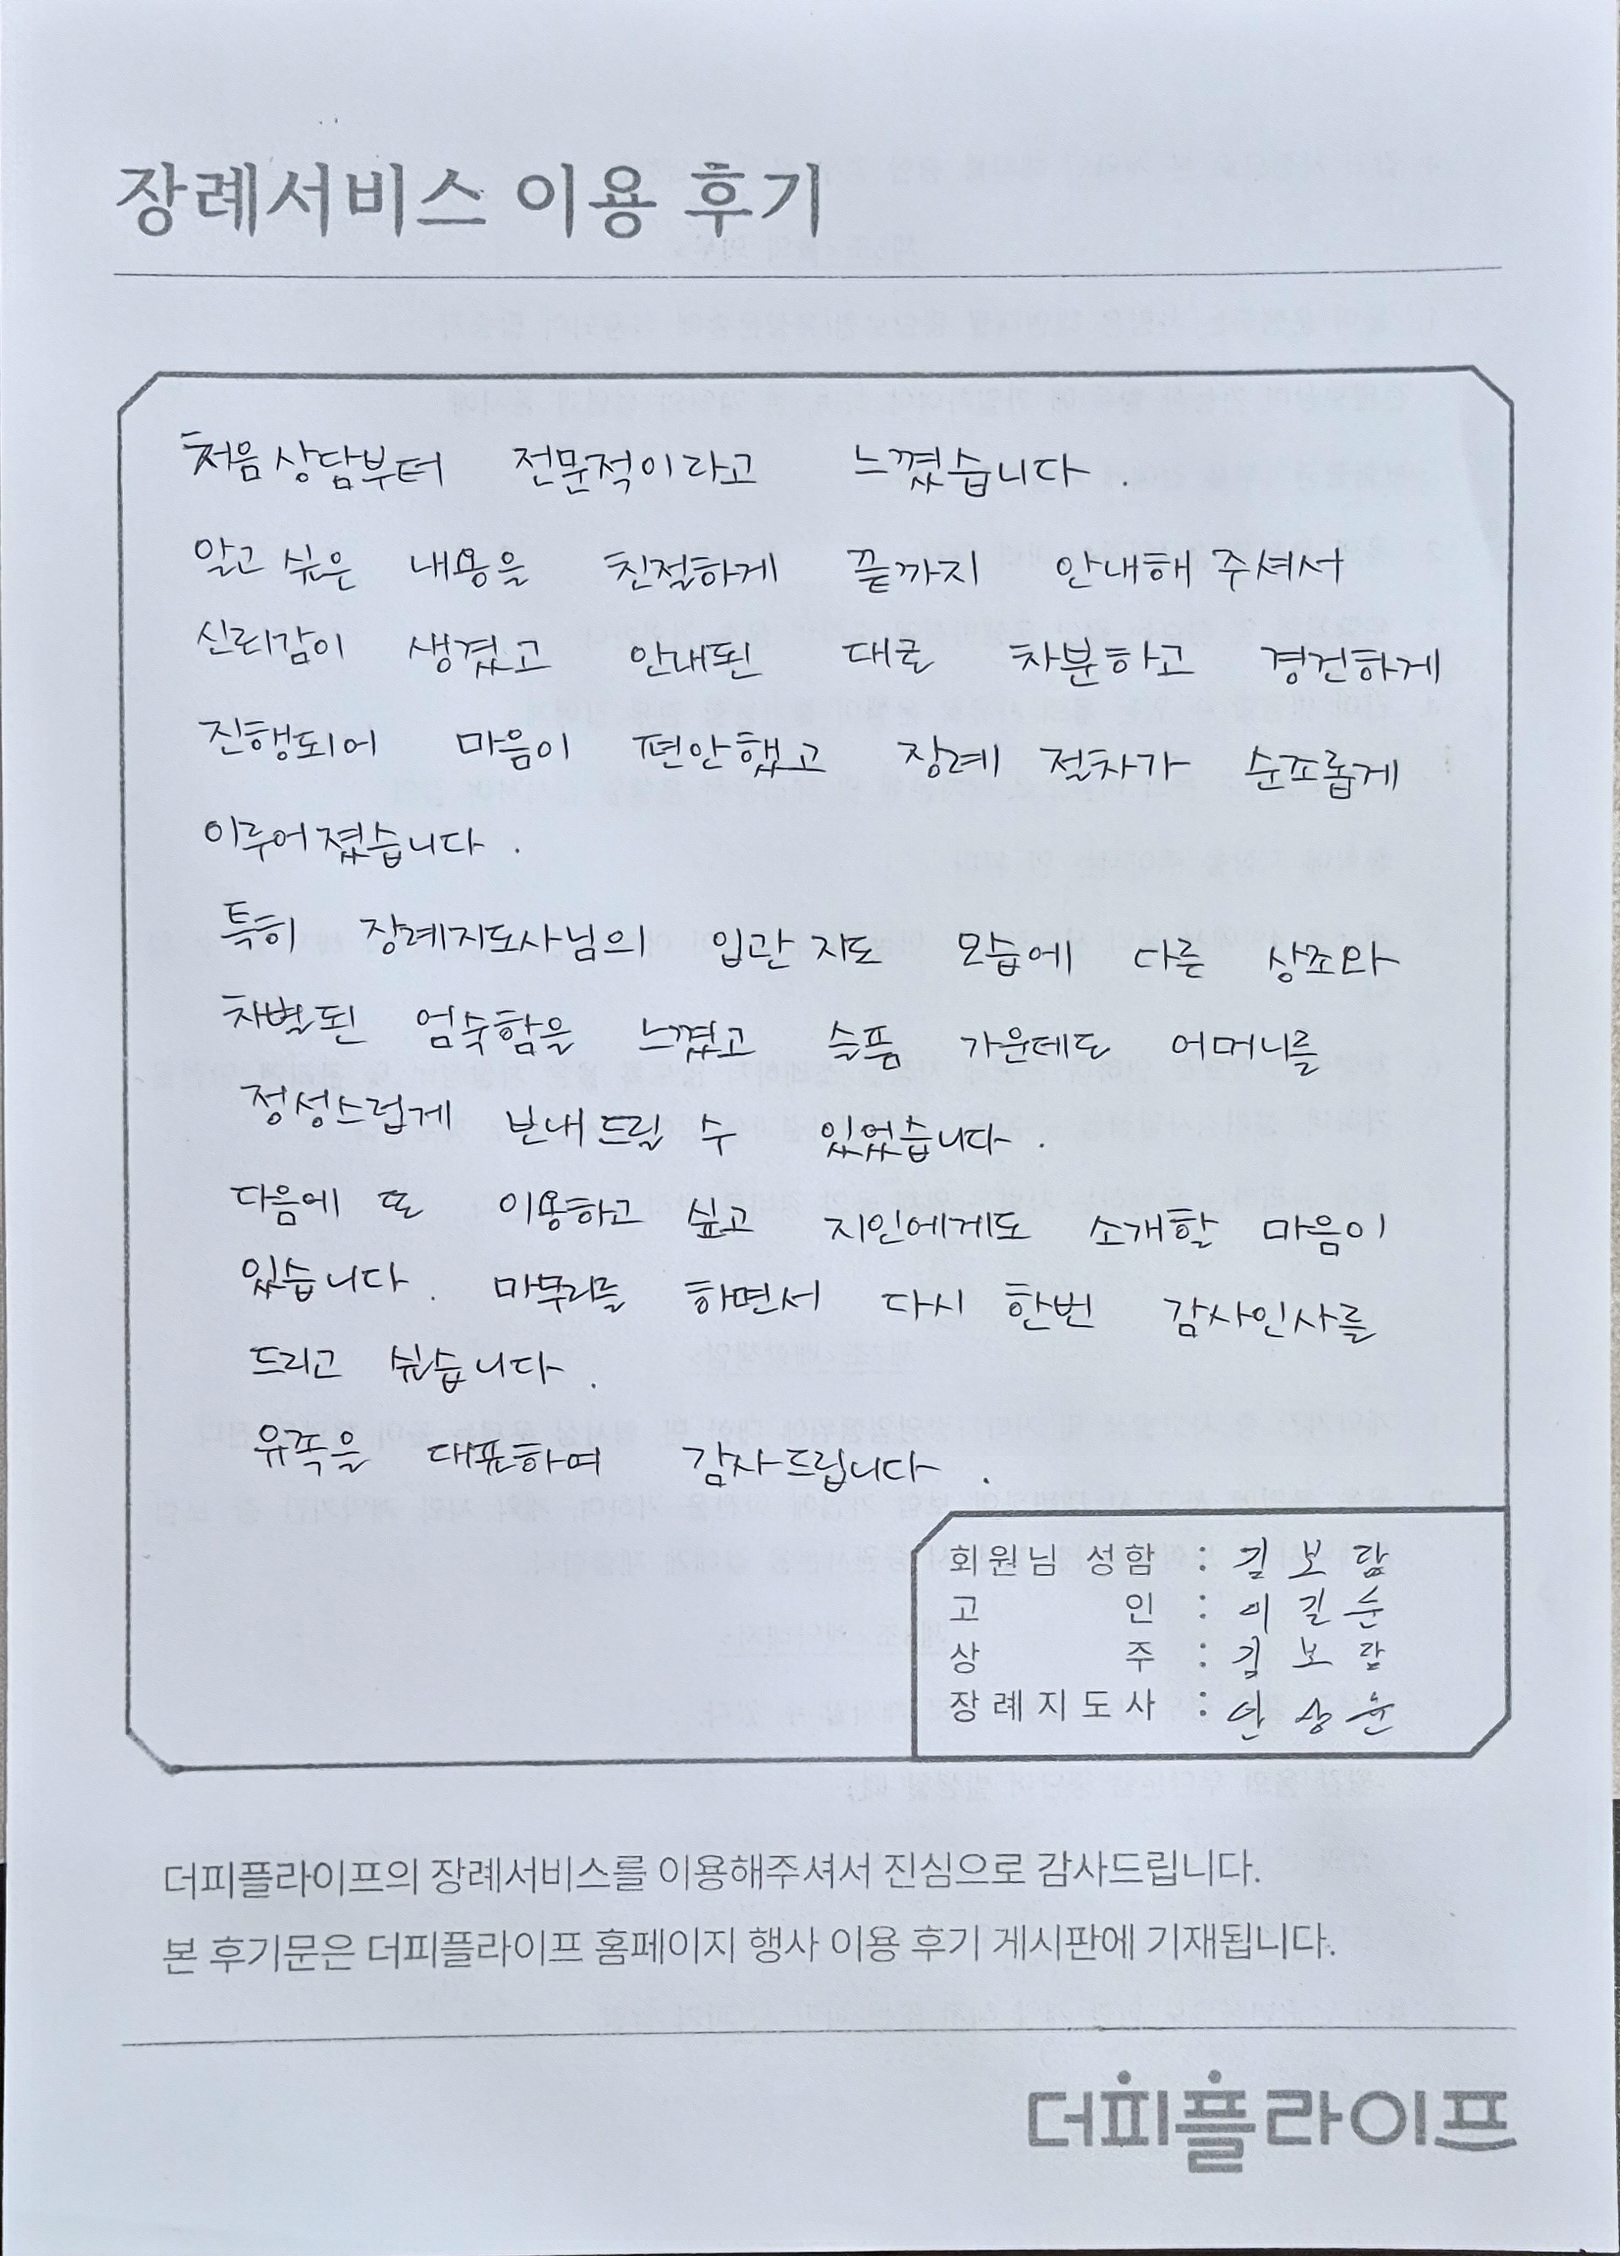 장례서비스 이용 후기
처음 상담부터 전문적이라고 느꼈습니다.
알고 싶은 내용을 친절하게 끝까지 안내해 주셔서
신뢰감이 생겼고 안내된 대로 차분하고 경건하게
진행되어 마음이 편안했고 장례 절차가 순조롭게
이루어졌습니다.
특히 장례지도사님의 입관 지도 모습에 다른 상조와
차별된 엄숙함을 느꼈고 슬픔 가운데도 어머니를
정성스럽게 보내드릴 수 있었습니다.
다음에 또 이용하고 싶고 지인에게도 소개할 마음이
있습니다. 마무리를 하면서 다시 한번 감사인사를
드리고 싶습니다.
유족을 대표하여 감사드립니다.
회원님 성함 : 김보람
고 인 : 이길순
상 주 : 김보람
장례지도사 : 안상윤
더피플라이프의 장례서비스를 이용해주셔서 진심으로 감사드립니다.
본 후기문은 더피플라이프 홈페이지 행사 이용 후기 게시판에 기재됩니다.
더피플라이프